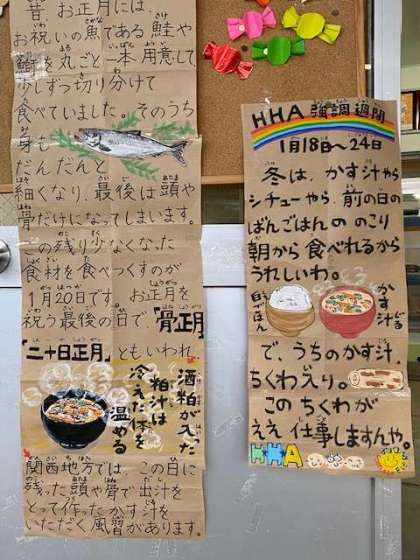 昔、お正月には、
お祝いの魚である鮭や
鰤を丸ごと一本用意して
少しずつ切り分けて
食べていました。そのうち
身も
だんだんと
細くなり、最後は頭や
骨だけになってしまいます。
この残り少なくなった
食材を食べつくすのが
1月20日です。お正月を
祝う最後の日で、「骨正月」
「二十日正月」ともいわれ、
酒粕が入った
粕汁は
冷えた体を
温める
関西地方では、この日に
残った頭や骨で出汁を
とって作ったかす汁を
いただく風習があります。
HHA強調週間
1月18日〜24日
冬は、かす汁やら
シチューやら、前の日の
ばんごはんの のこり
朝から食べれるから
うれしいわ。
白ごはん
かす汁
で、うちのかす汁、
ちくわ入り。
このちくわが
ええ仕事しますんや。
HHA